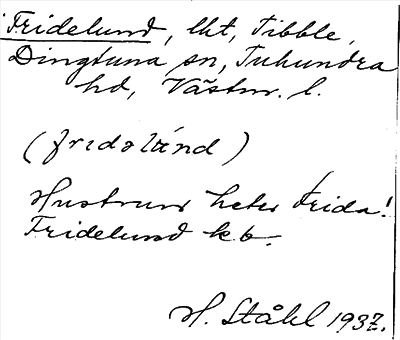 Fridelund, lht, Tibble,
Dingtuna sn, Tuhundra
hd, Västm. l.
(fridəlúnd)
Hustrun heter Frida!
Fridelund kb.
H. Ståhl 1937.